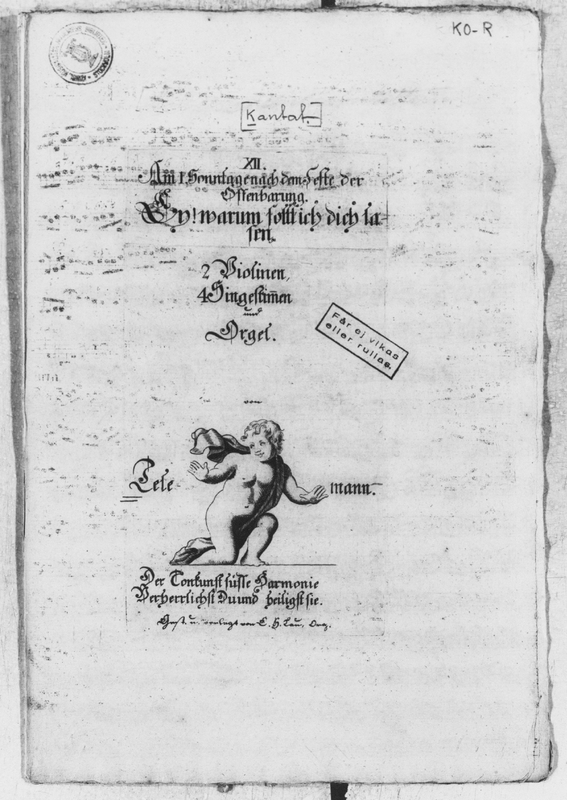 KO-R
[Kantat.]
XII.
Am I. Sonntage nach dem Feste der
Offenbarung.
Ey! warum sollt ich dich la-
sen.
2 Violinen,
4 Singestimen
und
Orgel.
Får ej vikas
eller rullas.
von
Tele mann.
Der Tonkunst süsse Harmonie
Verherrlichst Du und heiligst sie.
Gest. u. verlegt von C. H. Lau, Org.